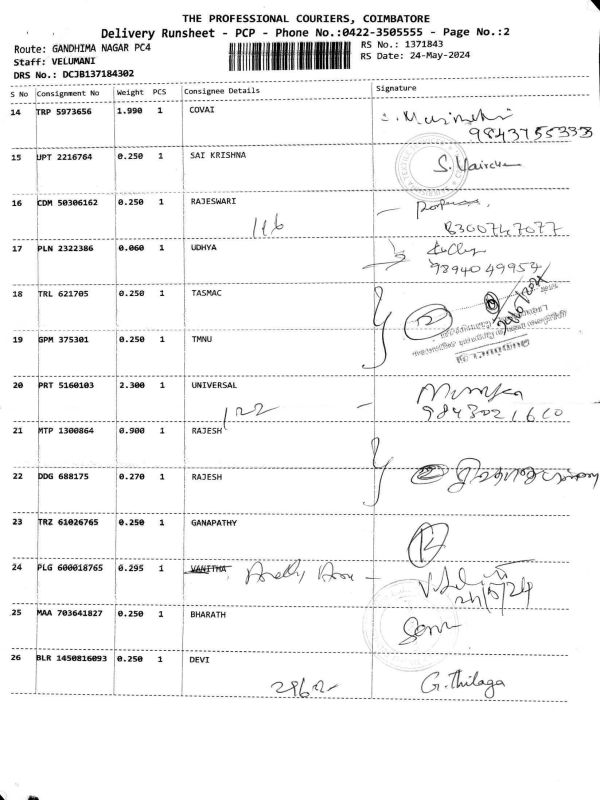 THE PROFESSIONAL COURIERS, COIMBATORE
Delivery Runsheet - PCP - Phone No.:0422-3505555 - Page No.:2
Route: GANDHIMA NAGAR PC4
RS No.: 1371843
Staff: VELUMANI
RS Date: 24-May-2024
DRS No.: DCJB137184302
S No Consignment No Weight PCS Consignee Details Signature
14 TRP 5973656 1.990 1 COVAI
9843755333
15 UPT 2216764 0.250 1 SAI KRISHNA S.
16 CDM 50306162 0.250 1 RAJESWARI
116 8300747077
17 PLN 2322386 0.060 1 UDHYA
9894049954
18 TRL 621705 0.250 1 TASMAC
19 GPM 375301 0.250 1 TMNU
20 PRT 5160103 2.300 1 UNIVERSAL
122 9843021610
21 MTP 1300864 0.900 1 RAJESH
22 DDG 688175 0.270 1 RAJESH
23 TRZ 61026765 0.250 1 GANAPATHY
24 PLG 600018765 0.295 1 VANITHA
24/5/24
25 MAA 703641827 0.250 1 BHARATH
26 BLR 1450816093 0.250 1 DEVI
G. Thilaga